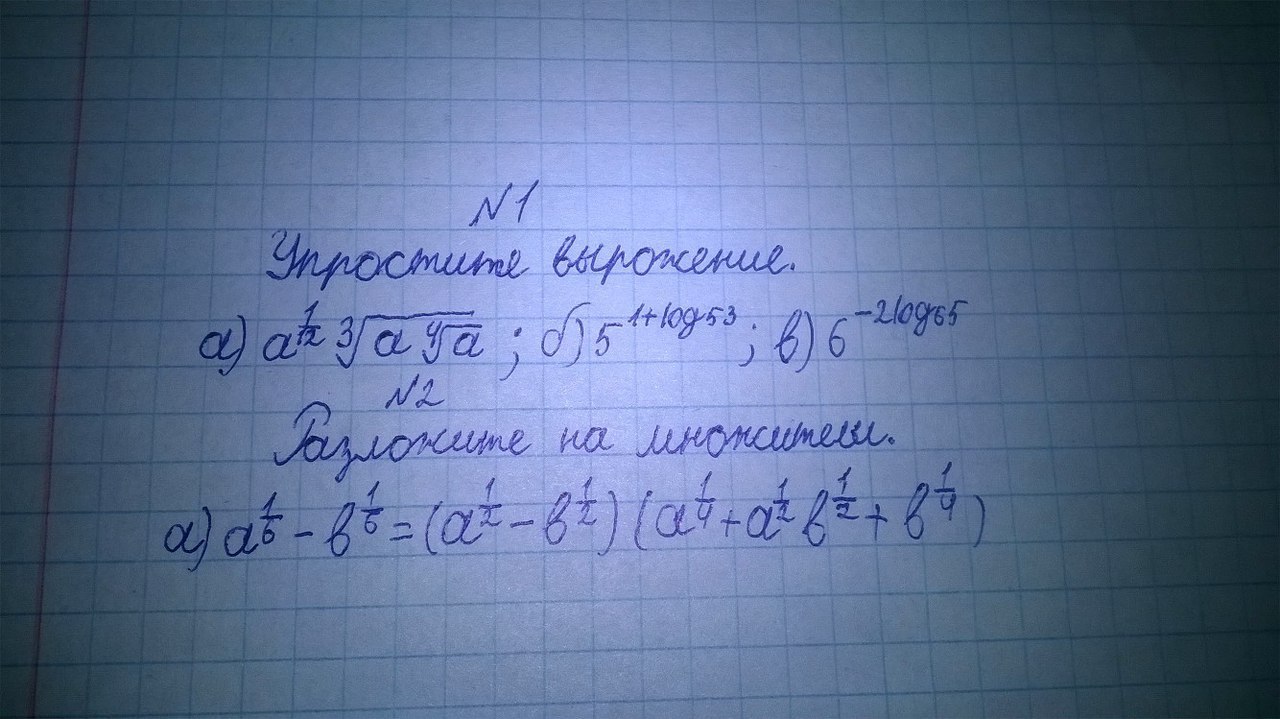 N1
Упростите вырожение.
а) a^{\frac{1}{2}} \sqrt[3]{a \sqrt[4]{a}} ; б) 5^{1+log_5 3} ; в) 6^{-2log_6 5}
N2
Разложите на множители.
а) a^{\frac{1}{6}} - b^{\frac{1}{6}} = (a^{\frac{1}{2}} - b^{\frac{1}{2}}) (a^{\frac{1}{4}} + a^{\frac{1}{2}} b^{\frac{1}{2}} + b^{\frac{1}{4}})